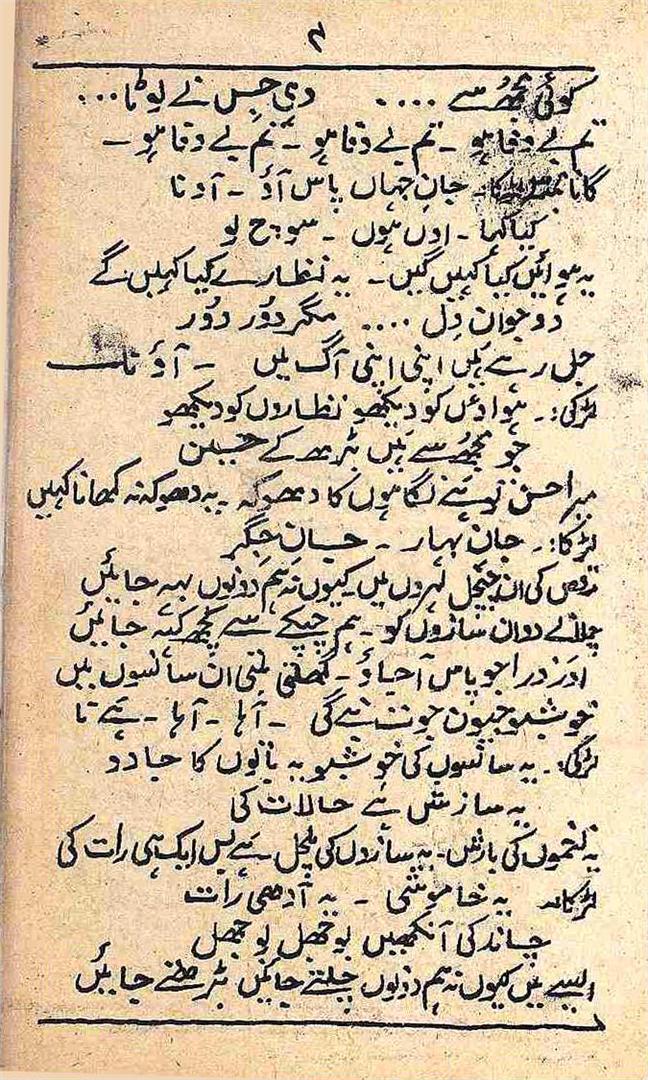 ۳
کوئی مجھُ سے .... دی جس نے لوٹا ...
تم بے وفا ہو ۔ تم بے وفا ہو ۔ تم بے وفا ہو ۔
گانا جانِ جہاں پاس آؤ ۔ آؤ نا
کیا کہا ۔ اوں ہوں ۔ سوچ لو
یہ ہوائیں کیا کہیں گیں ۔ یہ نظارے کیا کہیں گے
دو جوان دِل .... مگر دوُر دوُر
جل رہے ہیں اپنی اپنی آگ میں ۔ آؤ نا
لڑکی :۔ ہواؤں کو دیکھو نظاروں کو دیکھو
جو مجھُ سے ہیں بڑھ کے حسین
میرا حسن نہیں ہے نگاہوں کا دھوکہ ۔ یہ دھوکہ نہ کھانا کہیں
لڑکا :۔ جانِ بہار ۔ جانِ جِگر
ندی کی ان چنچل لہروں میں کیوں نہ ہم دونوں بہہ جائیں
دوان سازوں کو ۔ ہم چپکے سے کچھ کہہ جائیں
اور ذرا جو پاس آجاؤ ۔ گھلتی ملتی ان سانسوں میں
خوشبو جیون جوت بنے گی ۔ آہا ۔ آہا ۔ ہے نا
لڑکی :۔ یہ سانسوں کی خوشبو یہ باتوں کا جادو
یہ سازش ہے حالات کی
یہ نغموں کی بارش ۔ یہ سازوں کی ہلچل ہے بس ایک ہی رات کی
لڑکا یہ خاموشی ۔ یہ آدھی رات
چاند کی آنکھیں بوجھل بوجھل
ایسے میں کیوں نہ ہم دونوں چلتے جائیں بڑھتے جائیں